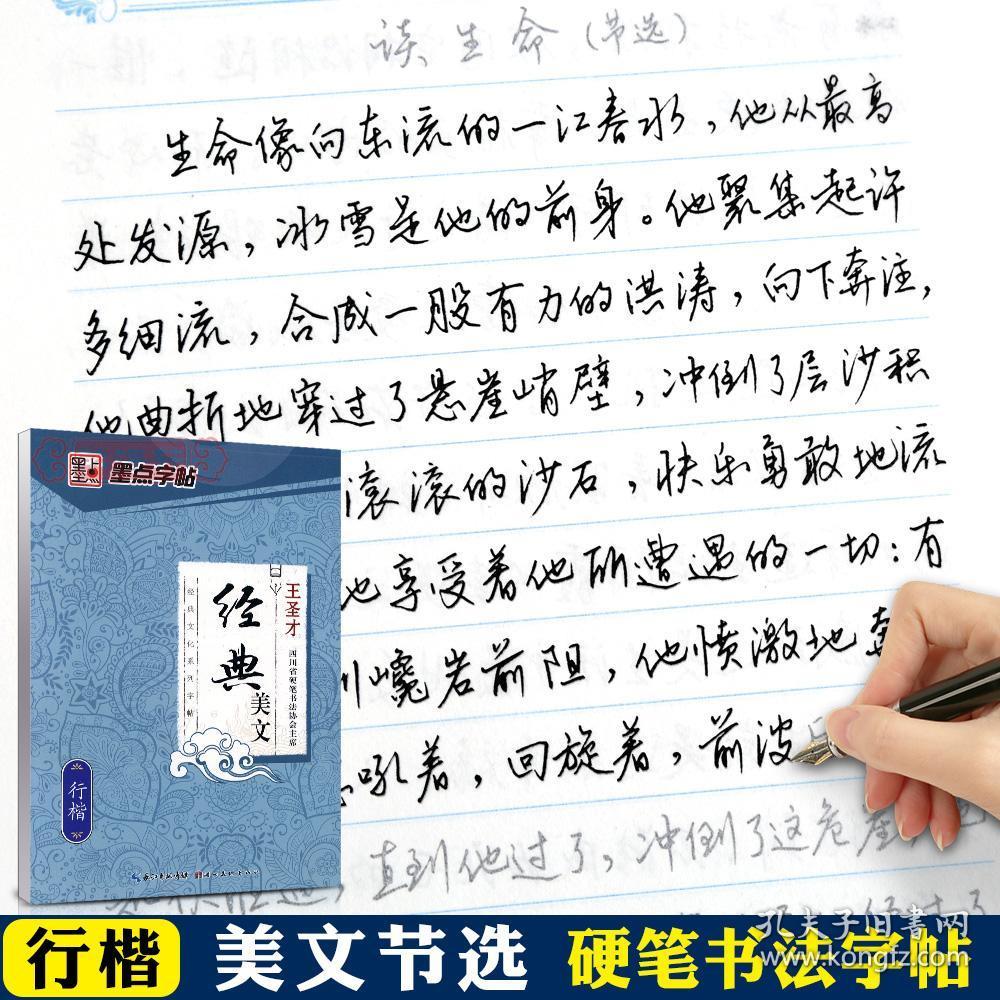 谈生命（节选）
生命像向东流的一江春水，他从最高
处发源，冰雪是他的前身。他聚集起许
多细流，合成一股有力的洪涛，向下奔注，
他曲折地穿过了悬崖峭壁，冲倒了层沙积
滚滚的沙石，快乐勇敢地流
也享受着他所遭遇的一切：有
巉岩前阻，他愤激地奔
吼着，回旋着，前波
直到他过了，冲倒了这危崖
墨点字帖
王圣才
四川省硬笔书法协会主席
经典
美文
经典文化系列字帖
行楷
行楷 美文节选 硬笔书法字帖
孔夫子旧书网
www.kongfz.com